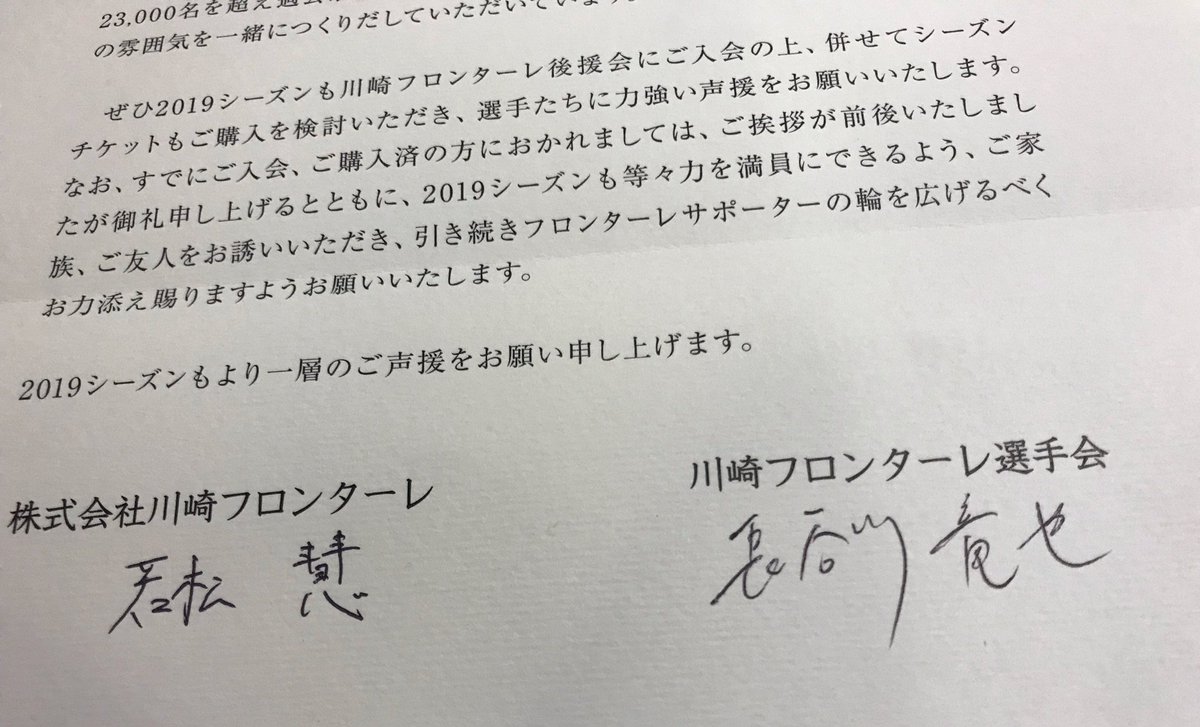 23,000名を超え過去
の雰囲気を一緒につくりだしていただいています
ぜひ2019シーズンも川崎フロンターレ後援会にご入会の上、併せてシーズン
チケットもご購入を検討いただき、選手たちに力強い声援をお願いいたします。
なお、すでにご入会、ご購入済の方におかれましては、ご挨拶が前後いたしまし
たが御礼申し上げるとともに、2019シーズンも等々力を満員にできるよう、ご家
族、ご友人をお誘いいただき、引き続きフロンターレサポーターの輪を広げるべく
お力添え賜りますようお願いいたします。
2019シーズンもより一層のご声援をお願い申し上げます。
株式会社川崎フロンターレ
若松 慧
川崎フロンターレ選手会
長谷川 竜也